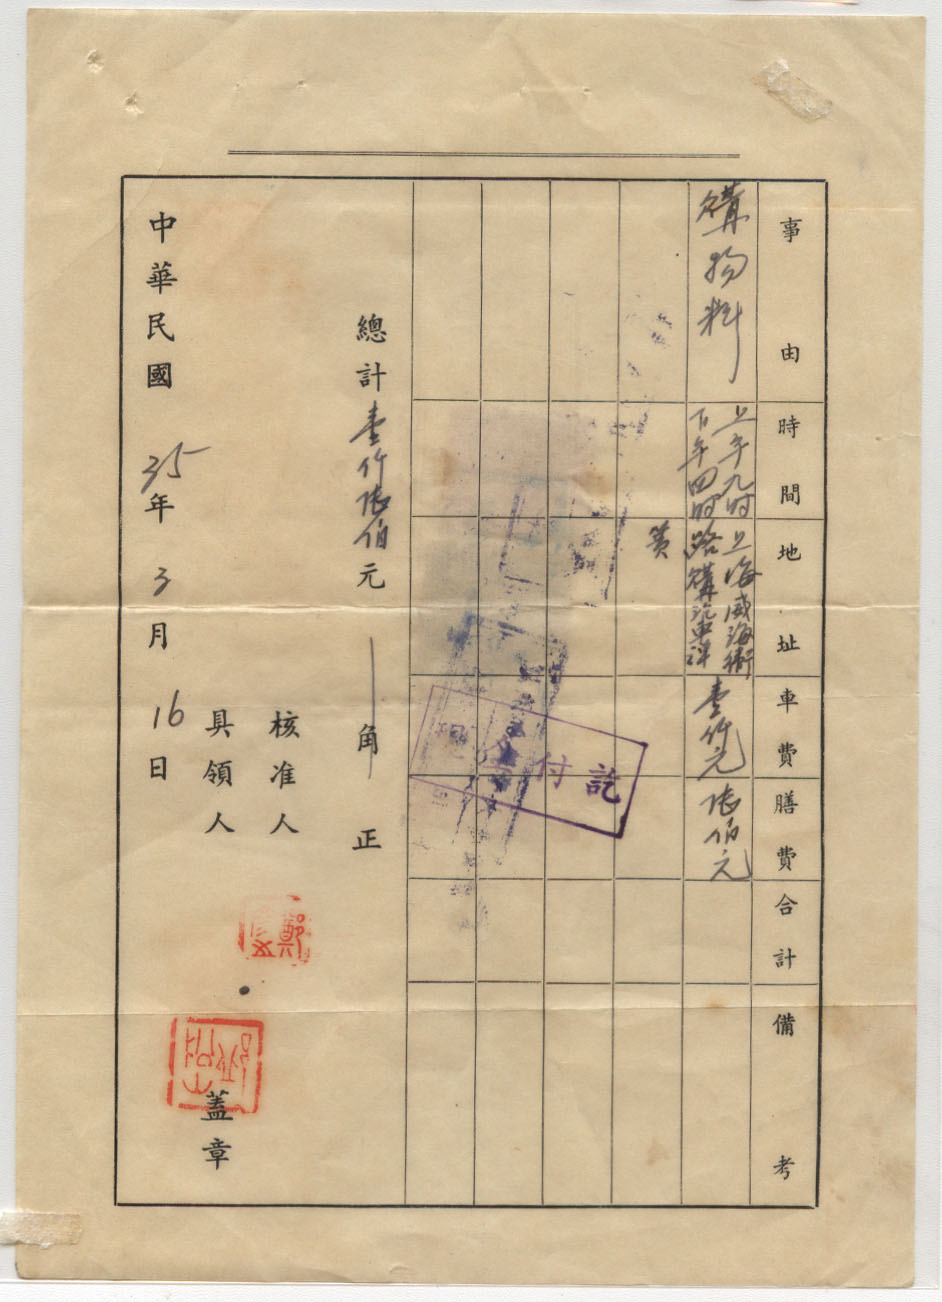 事由
時間
地址
車費
膳費
合計
備考
購物料
上午九时
下午四时
上海威海衛
路購汽車洋
黄
壹仟元
伍佰元
總計壹仟伍佰元角正
現金付訖
核准人
具領人
蓋章
鄭
中華民國35年3月16日